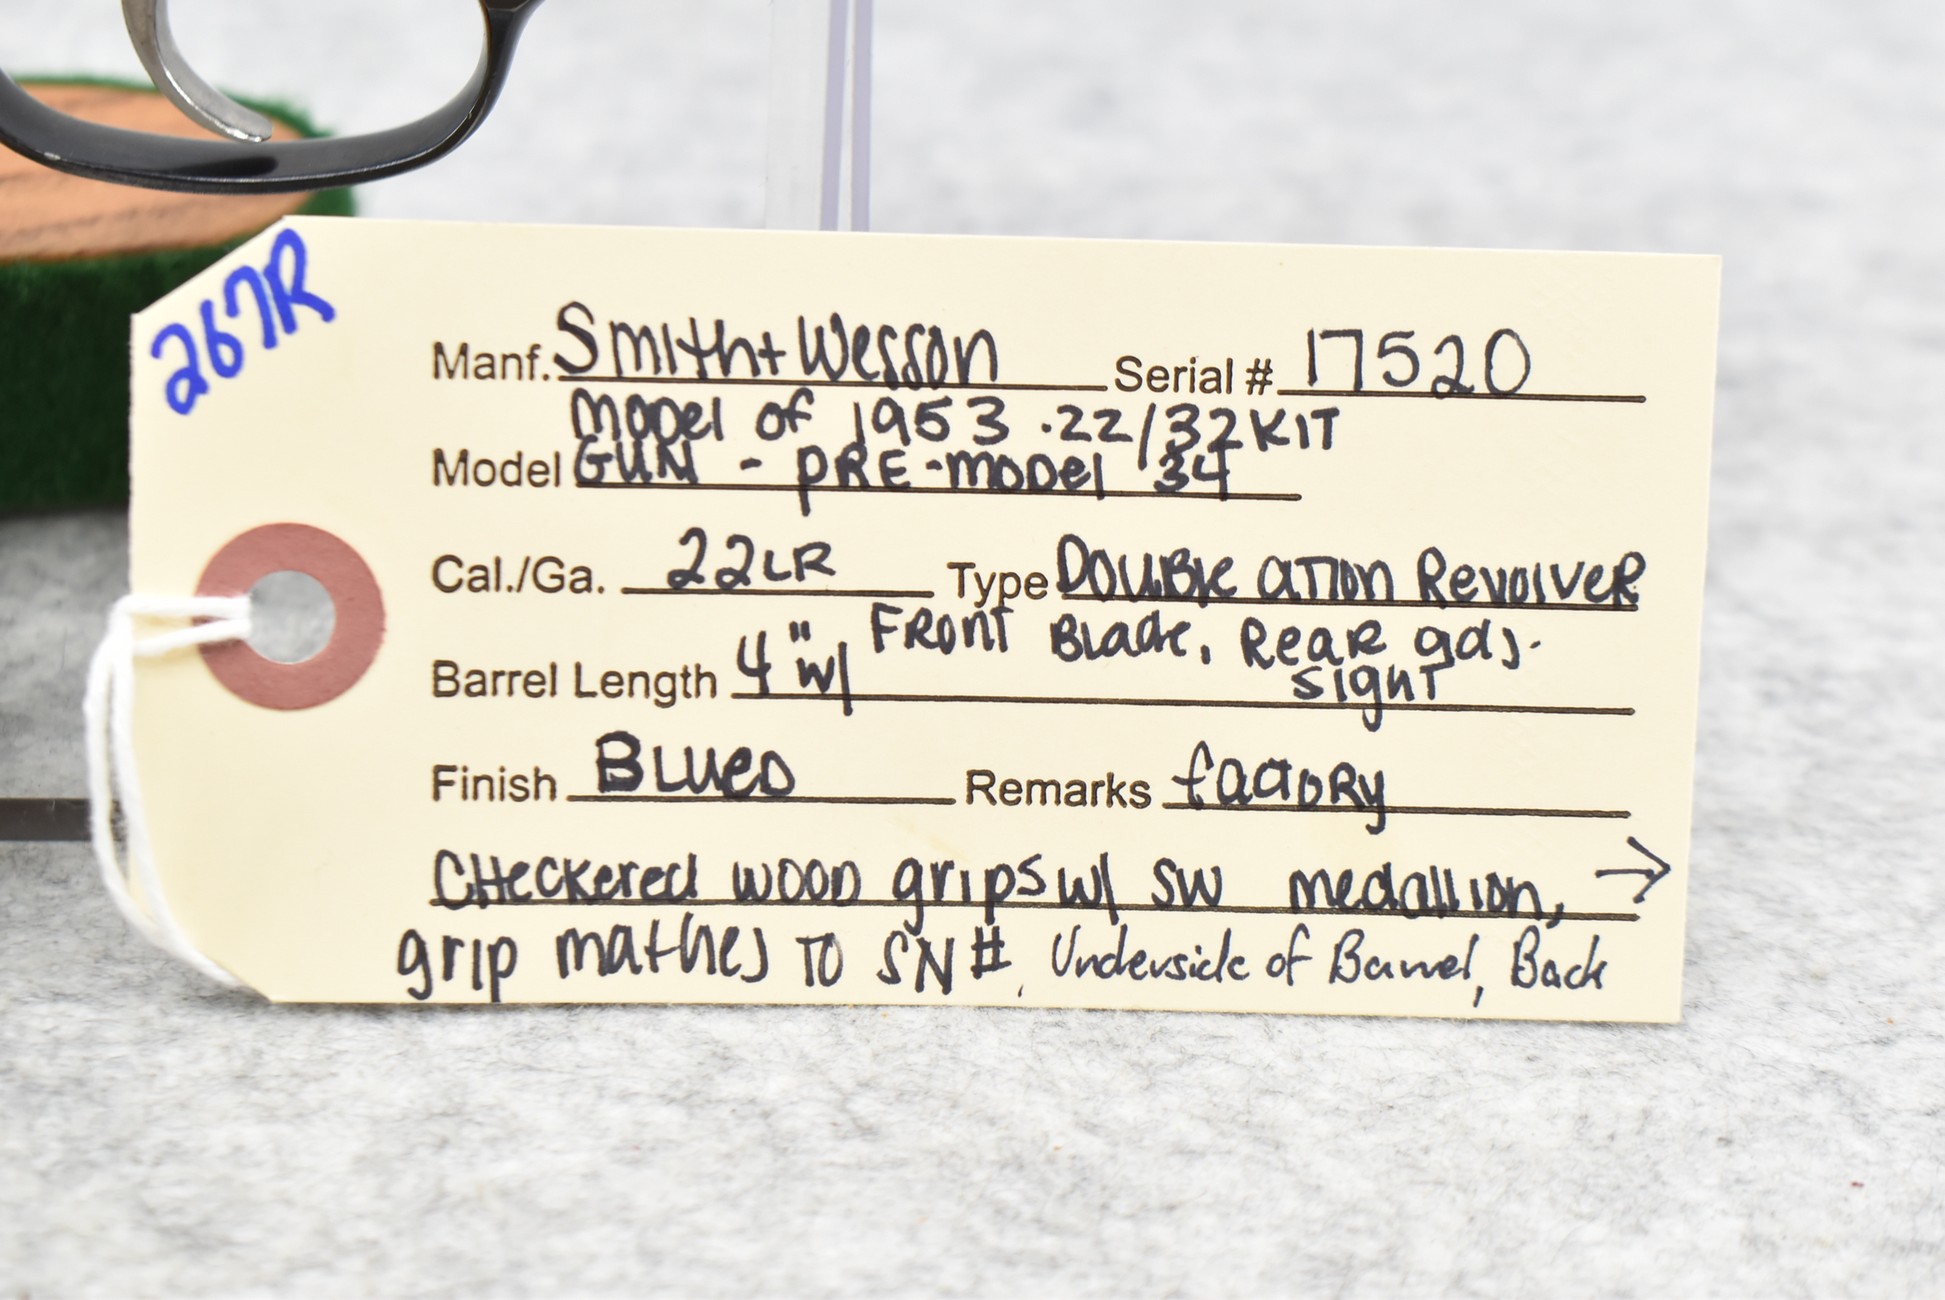 267R
Manf. Smith + Wesson Serial # 17520
Model of 1953 .22/32 KIT
Model GUN - PRE-Model 34
Cal./Ga. 22LR Type Double ation Revolver
Front Blade, Rear adj.
Barrel Length 4" w/ sight
Finish Blued Remarks factory
Checkered wood grips w/ SW medallion, →
grip mathes to SN#, Underside of Barrel, Back